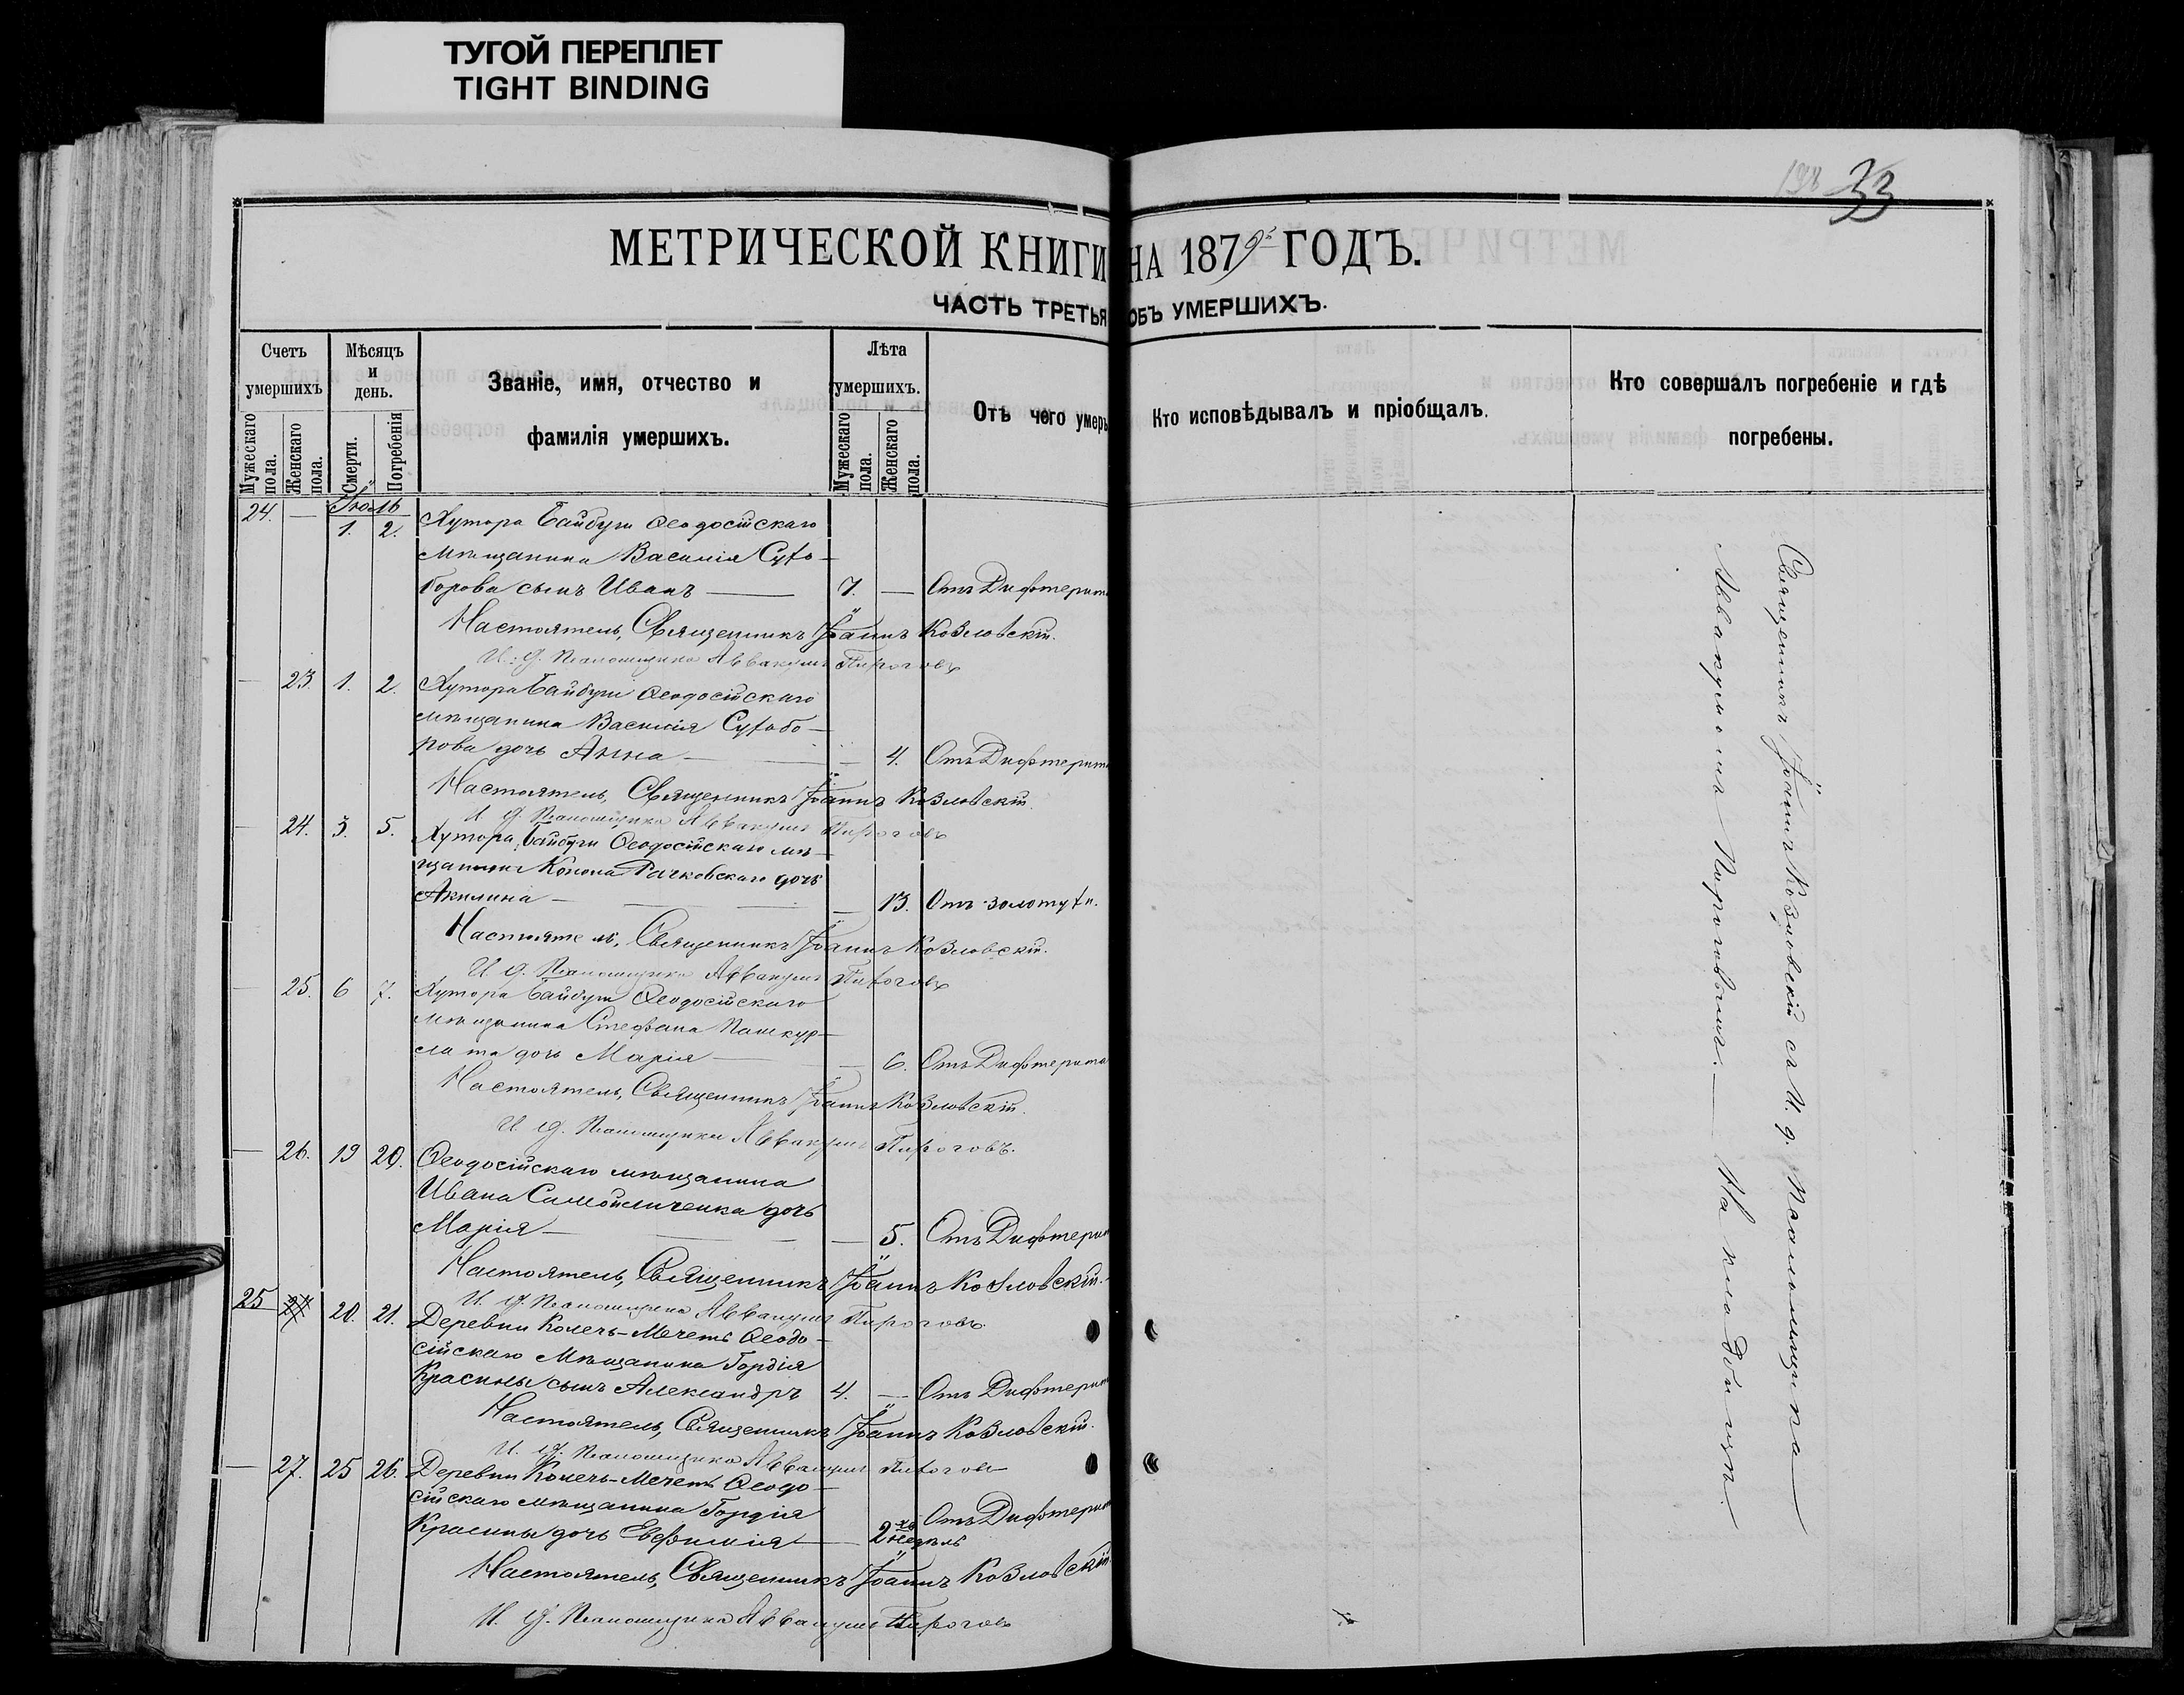 ТУГОЙ ПЕРЕПЛЕТ
TIGHT BINDING
198 33
МЕТРИЧЕСКОЙ КНИГИ НА 1879й ГОДЪ.
ЧАСТЬ ТРЕТЬЯ ОБЪ УМЕРШИХЪ.
Счетъ умершихъ
Мужескаго пола.
Женскаго пола.
Мѣсяцъ и день.
Смерти.
Погребенія
Званіе, имя, отчество и
фамилія умершихъ.
Лѣта умершихъ.
Мужескаго пола.
Женскаго пола.
Отъ чего умеръ
Кто исповѣдывалъ и пріобщалъ.
Кто совершалъ погребеніе и гдѣ
погребены.
Іюль
24. — 1. 2. Хутора Байбуги Ѳеодосійскаго
мѣщанина Василія Сухо-
борова сынъ Иванъ — 7. — Отъ Дифтерит
Настоятель, Священникъ Іоаннъ Козловскій.
И. д. Псаломщика Аввакумъ Пироговъ
— 23. 1. 2. Хутора Байбуги Ѳеодосійскаго
мѣщанина Василія Сухобо-
рова дочь Анна — — 4. Отъ Дифтерит
Настоятель, Священникъ Іоаннъ Козловскій.
И. д. Псаломщика Аввакумъ Пироговъ
— 24. 3. 5. Хутора Байбуги Ѳеодосійскаго мѣ-
щанина Конона Рачковскаго дочь
Акилина — — 13. Отъ золотухи.
Настоятель, Священникъ Іоаннъ Козловскій.
И. д. Псаломщика Аввакумъ Пироговъ
— 25. 6 7. Хутора Байбуги Ѳеодосійскаго
мѣщанина Стефана Пашкур-
лата дочь Марія — — 6. Отъ Дифтерита
Настоятель, Священникъ Іоаннъ Козловскій.
И. д. Псаломщика Аввакумъ Пироговъ.
— 26. 19 20. Ѳеодосійскаго мѣщанина
Ивана Самойличенка дочь
Марія — — 5. Отъ Дифтерит
Настоятель, Священникъ Іоаннъ Козловскій.
И. д. Псаломщика Аввакумъ Пироговъ.
25 27 20. 21. Деревни Колечь-Мечеть Ѳеодо-
сійскаго Мѣщанина Гордія
Красины сынъ Александръ 4. — Отъ Дифтерит
Настоятель, Священникъ Іоаннъ Козловскій.
И. д. Псаломщика Аввакумъ Пироговъ
— 27. 25 26. Деревни Колечь-Мечеть Ѳеодо-
сійскаго мѣщанина Гордія
Красины дочь Евфимія — — 2хъ недѣль Отъ Дифтерит
Настоятель, Священникъ Іоаннъ Козловскій.
И. д. Псаломщика Аввакумъ Пироговъ
Священникъ Іоаннъ Козловскій съ И. д. Псаломщика —
Аввакумомъ Пироговымъ. — На кладбищѣ. —